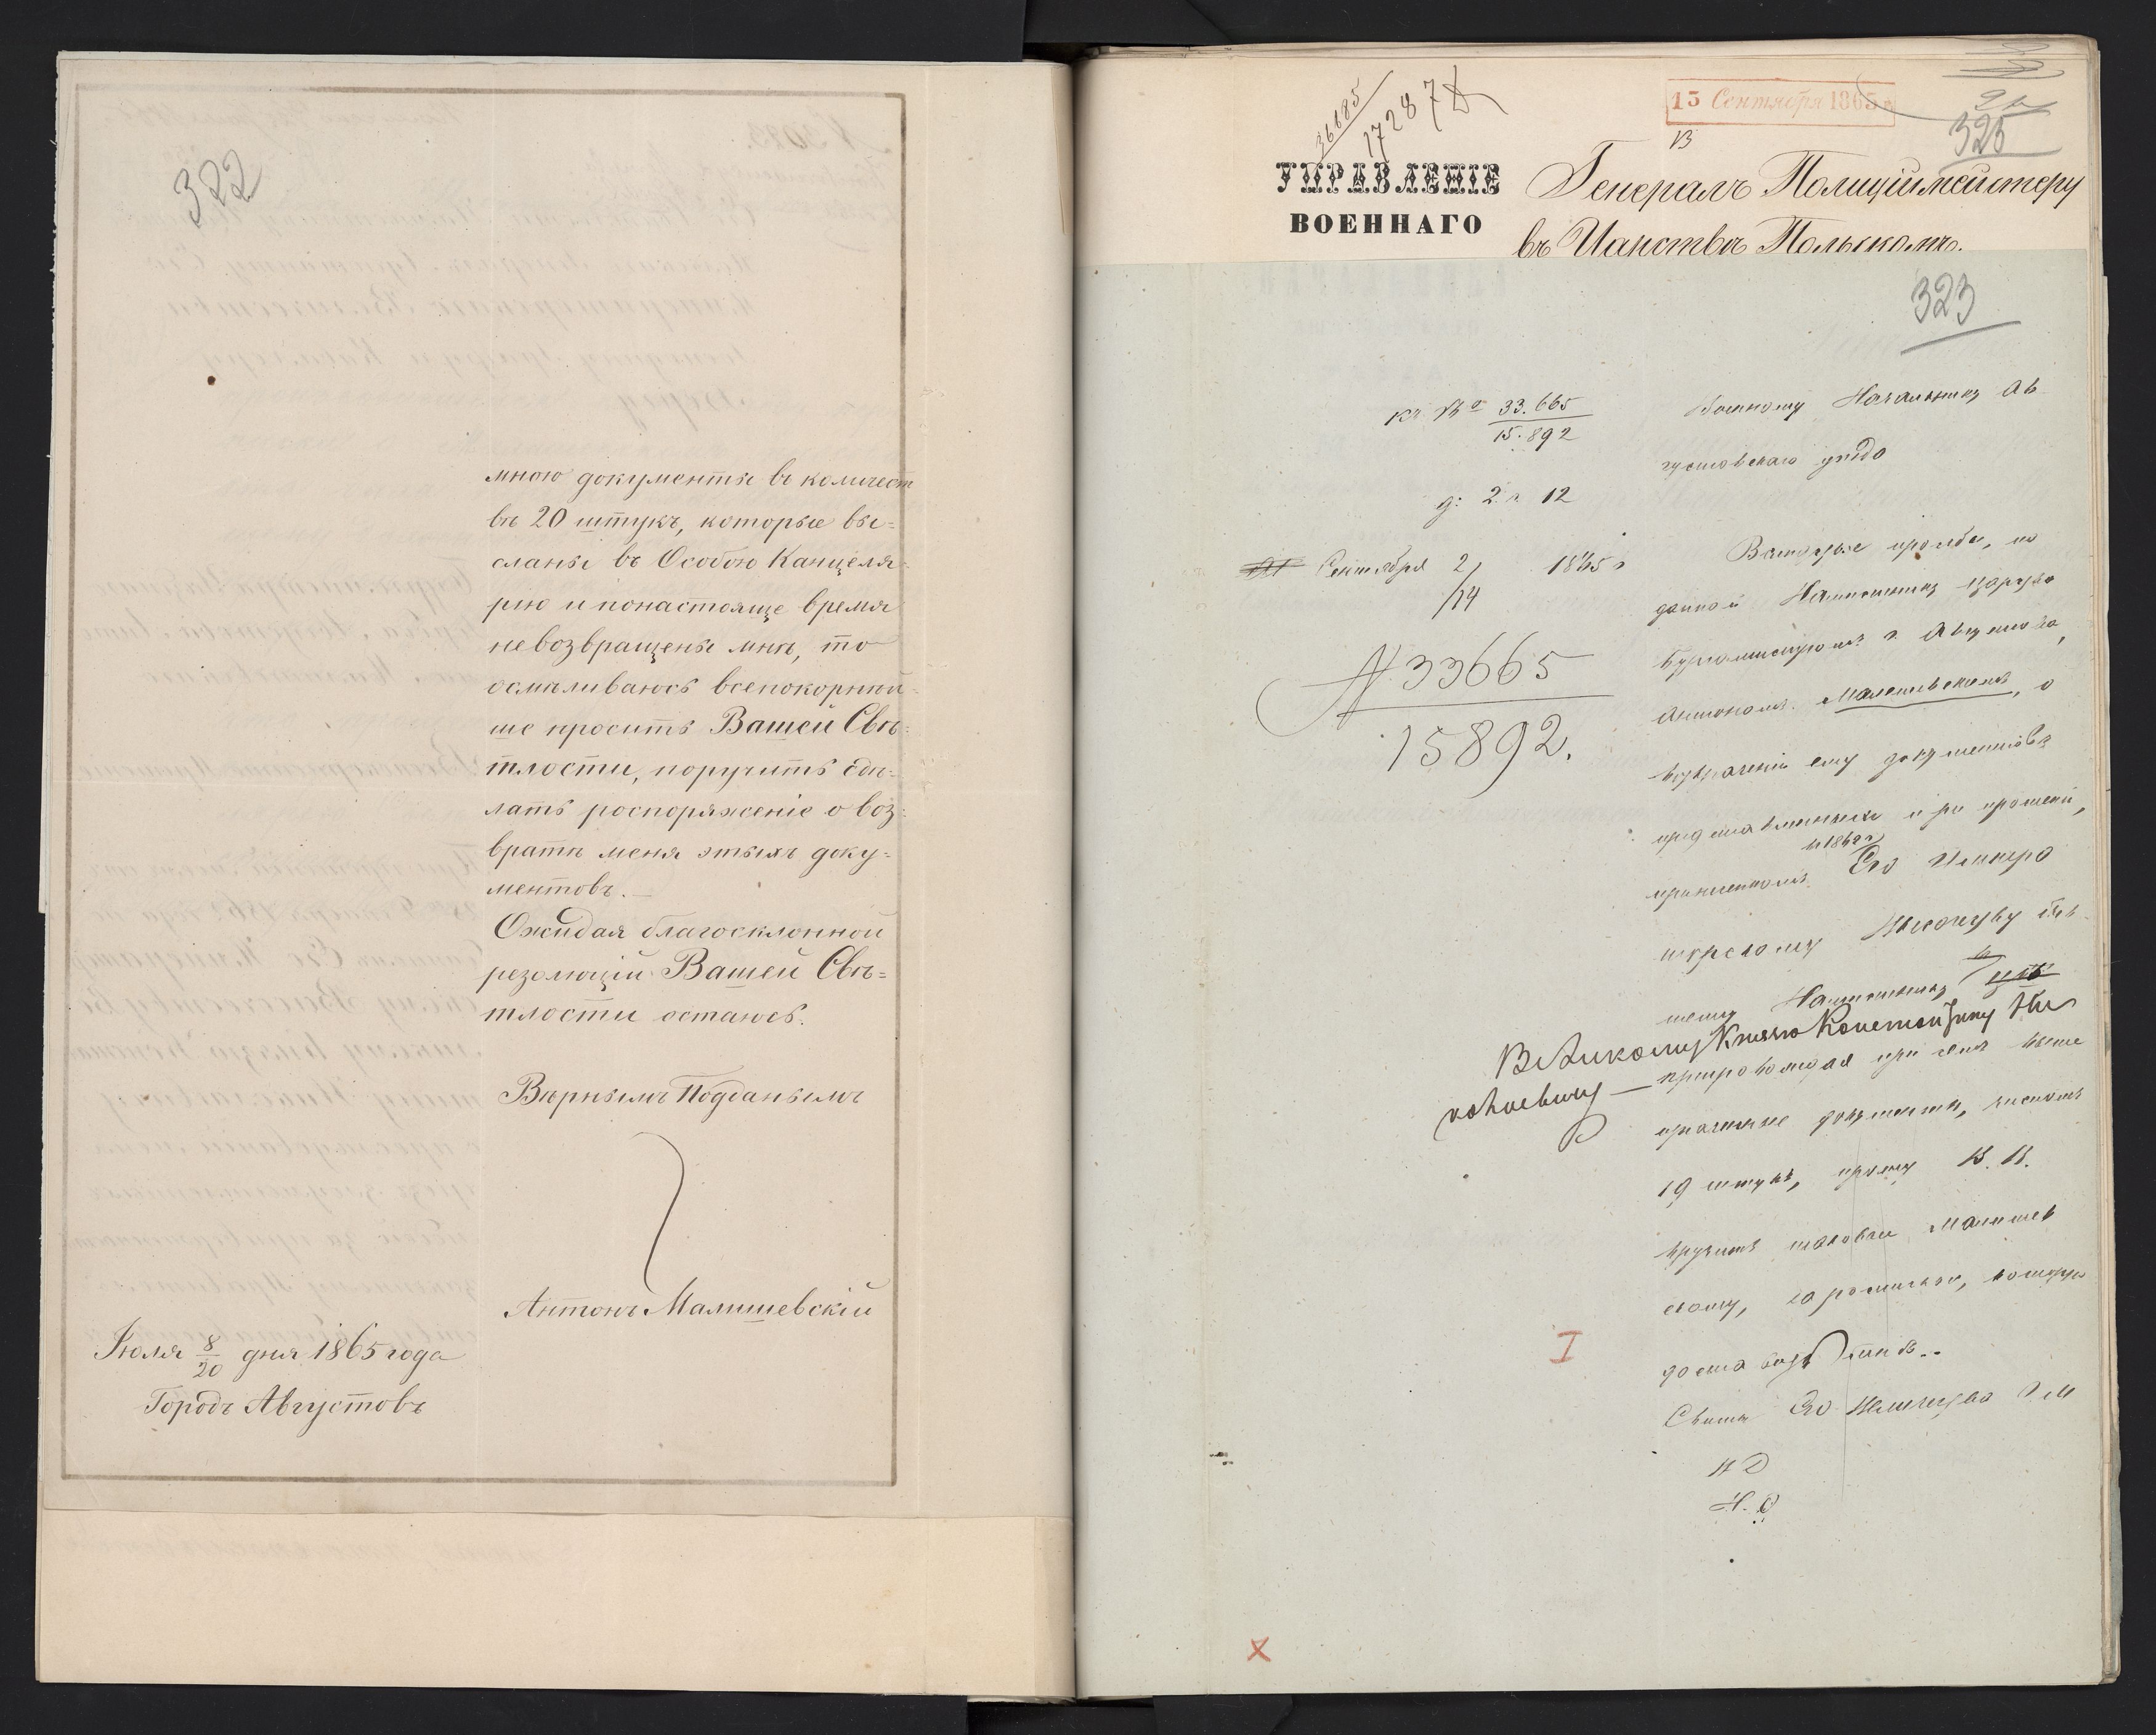 322
мною документы въ количест
вѣ 20 штукъ, которые вы=
сланы въ Особою Канцеля=
рію и понастояще время
невозвращены мнѣ, то
осмѣливаюсь всепокорнѣй=
ше просить Вашей Свѣ=
тлости, поручить сдѣ=
лать роспоряженіе о воз=
вратѣ меня этыхъ доку=
ментовъ.—
Ожидая благосклонной
резолюціи Вашей Свѣ=
тлости остаюсь.
Вѣрнымъ Подданымъ
Антонъ Малишевскій
Іюля 8/20 дня 1865 года
Городъ Августовъ
36685
17287
15 Сентября 1865
325
УПРАВЛЕНІЕ
ВОЕННАГО
Генералъ Полиціймейстеру
въ Царствѣ Польскомъ.
323
къ № 33.665
15.892
д: 2. 12
Сентября 2/14 1865 г
№ 33665
15892.
Военному Начальнику Ав
густовскаго уѣзда
Вслѣдствіе просьбы, по
данной Намѣстнику Царства
Бургомистромъ г. Августова,
Антономъ Малишевскимъ, о
возвращеніи ему документовъ
представленныхъ при прошеніи,
въ 1862 г
принесенномъ Его Импера
торскому Высочеству быв
шему Намѣстнику
Великому Князю Константину Ни
колаевичу —
препровождая при семъ выше
прописанные документы, числомъ
19 штукъ, прошу В. В.
вручить таковые Малишев
скому, съ роспискою, которую
доставить..
Свиты Его Величества Г. М
Н Д
Н. О